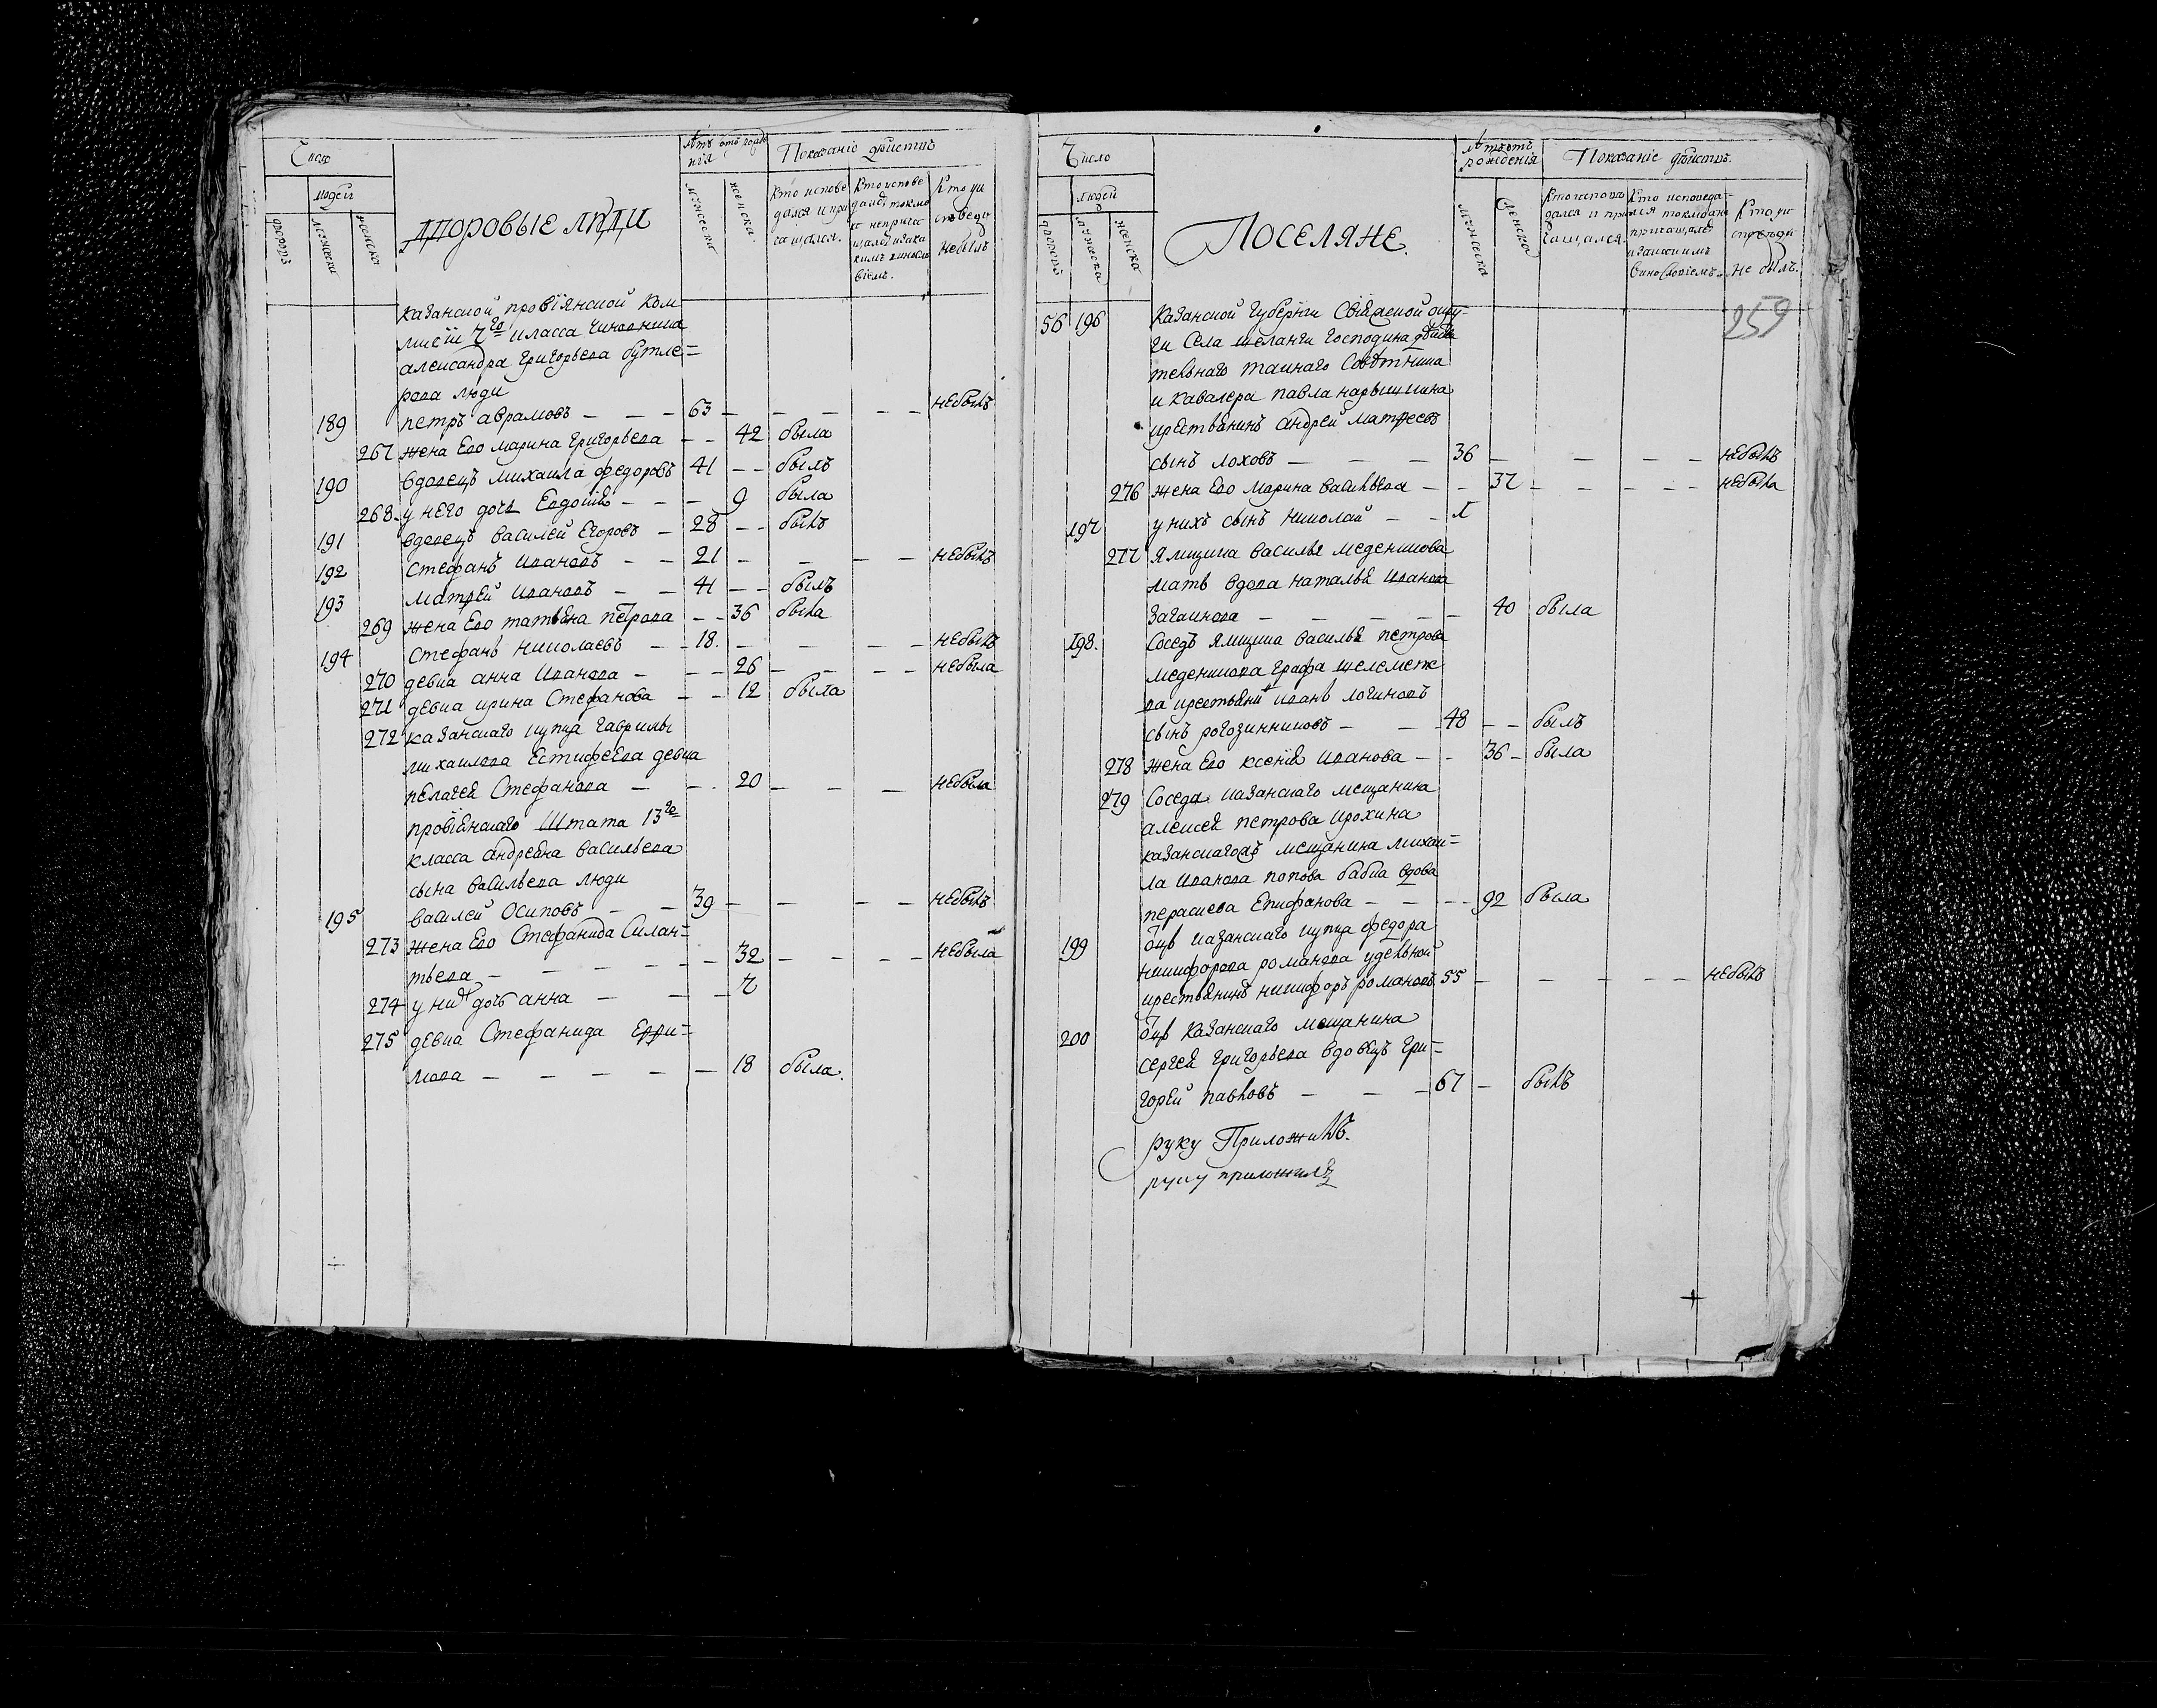 Число
людей
дворовъ
мужеска
женска
ДВОРОВЫЕ ЛЮДИ
лѣтъ отъ рожде
нія
мужеска
женска
Показаніе действъ
Кто испове
дался и при
чащался.
Кто испове
дался токмо
а не прича
щался и за ка
кимъ винос
віемъ.
Кто у и
споведи
небылъ
казанской провіянской ком
мисіи 7го класса чиновника
александра Григорьева бутле=
рова люди
189 петръ аврамовъ — — — 63 — — — — — небылъ
267 жена Его марина Григорьева — — 42 была
190 вдовецъ михаила федоровъ 41 — — былъ
268 у него дочь Евдокия — — — 9 была
191 вдовецъ василей Егоровъ — 28 — — былъ
192 стефанъ ивановъ — — 21 — — — — небылъ
193 матвей ивановъ — — 41 — — былъ
269 жена Его татьяна петрова — — 36 была
194 стефанъ николаевъ — — 18. — — — — небылъ
270 девка анна иванова — — — 26 — — — — небыла
271 девка ирина Стефанова — — 12 была
272 казанскаго купца гаврилы
михаилова Естифеева девка
пелагея Стефанова — — . 20 — — — небыла
провіянскаго Штата 13го
класса андреяна васильева
сына васильева люди
195 василей осиповъ — — 39 — — — — небылъ
273 жена Его Стефанида Силан=
тьева — — — — — — 32 — — — — небыла
274 у них дочь анна — — — 7
275 девка Стефанида Ефи=
мова — — — — — 18 была.
Число
людей
дворовъ
мужеска
женска
ПОСЕЛЯНЕ.
лѣтъ отъ
рожденія
мужеска
женска
Показаніе действъ.
Кто исповѣ
дался и при
чащался.
Кто исповеда
лся токмо а не
причащался
и за какимъ
винословіемъ.
Кто у и
споведи
не былъ.
259
56 196 Казанской Губерніи Свіяжской окру-
ги Села шеланги господина действи
тельнаго тайнаго Советника
и Кавалера павла нарышкина
крестьянинъ андрей матвеевъ
сынъ лоховъ — — — 36 — — — — небылъ
276 жена Его марина васильева — — 37 — — — — небыла
197 у нихъ сынъ николай — —
277 Ямщика василья меденикова
мать вдова наталья иванова
— — — — — 40 была
198. Соседъ Ямщика василья петрова
меденикова графа шелемете
ва крестьянинъ иванъ логиновъ
сынъ рогозинниковъ — — 48 — — былъ
278 жена Его ксения иванова — — 36 — была
279 Соседа казанскаго мещанина
алексея петрова ирохина
казанскагожъ мещанина михаи=
ла иванова попова бабка вдова
параскева Епифанова — — — — 92 была
199 оцъ казанскаго купца федора
никифорова романова удельной
крестьянинъ никифоръ романовъ 55 — — — — — небылъ
200 оцъ казанскаго мещанина
сергея григорьева вдовецъ гри=
горей павловъ — — — 67 — былъ
руку Приложилъ.
руку приложилъ